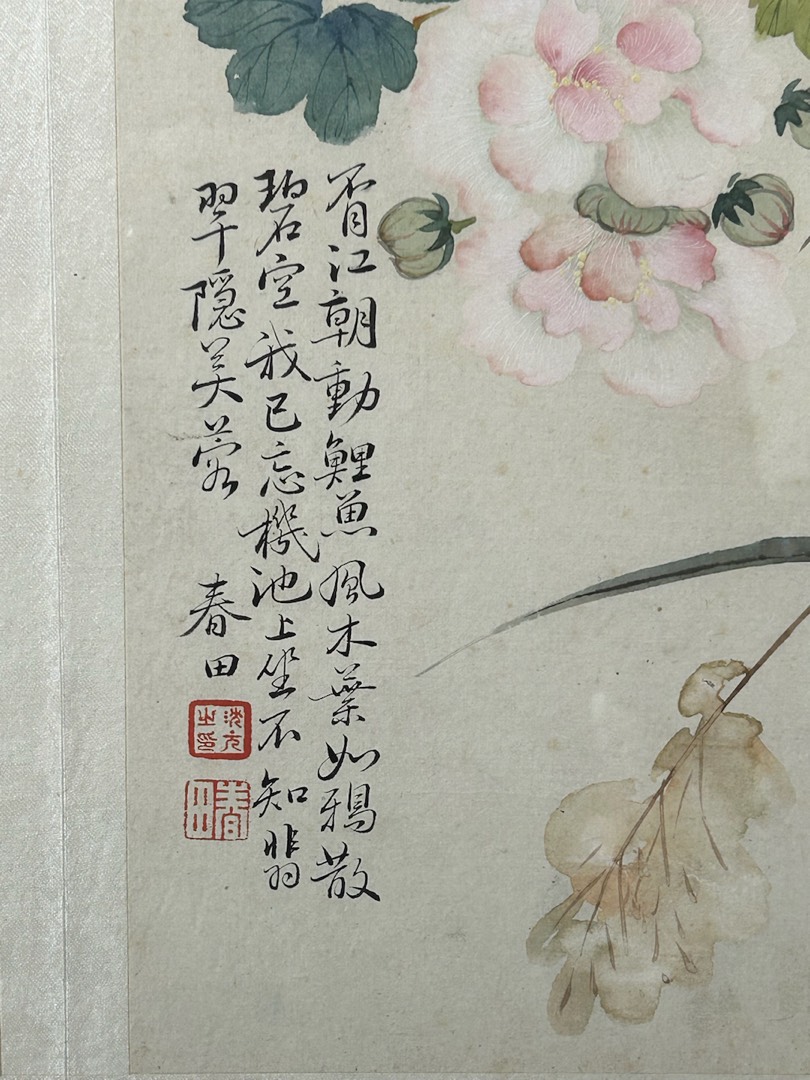 胥江朝動鯉魚風木葉如鴉散
碧空我已忘機池上坐不知翡
翠隱芙蓉 春田
之印